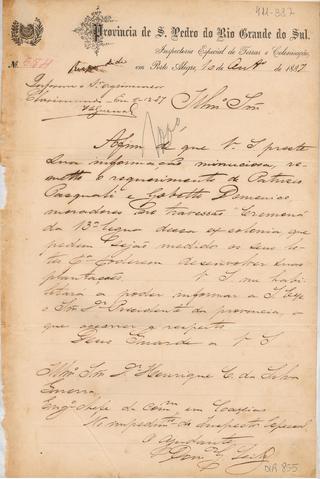 411-337
Provincia de S. Pedro do Rio Grande do Sul.
Inspectoria Especial de Terras e Colonisação,
Nº 254
em Porto Alegre, 10 de de 1887
Informe o Sr. agrimensor
Illmº Snr.
Afim de que V. S. preste
sua informação minuciosa, re-
metto o requerimento de Patricio
Pasquali e Gobetti Domenico,
moradores no travessão Cremona
da 13ª legua dessa ex-colonia que
pedem sejão medidos os seus lo-
tes pª poderem desenvolver suas
plantações. V. S. me habi-
litará a poder informar a S. Exª
o Snr. Dr. Presidente da provincia, o
que occorrer a respeito.
Deus Guarde a V. S.
Illmº Snr. Dr. Henrique C. da Silva
Engº chefe da Comm. em Caxias
No impedimº do Inspector Especial
O Ajudante
DIR 855